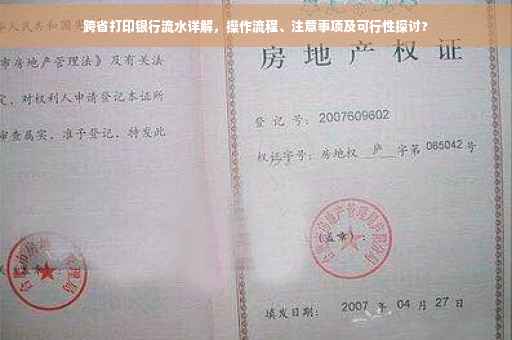 跨省打印银行流水详解，操作流程、注意事项及可行性探讨？
华人民共和国宪
市房地产管理法》及有关法
定，对权利人申请登记本证所
审查属实，准予登记，特发此
房地产权证
登记号：2007609602
权证字号：房地权 庐 字第 065042 号
(盖章)：
填发日期：2007 年 04 月 27 日